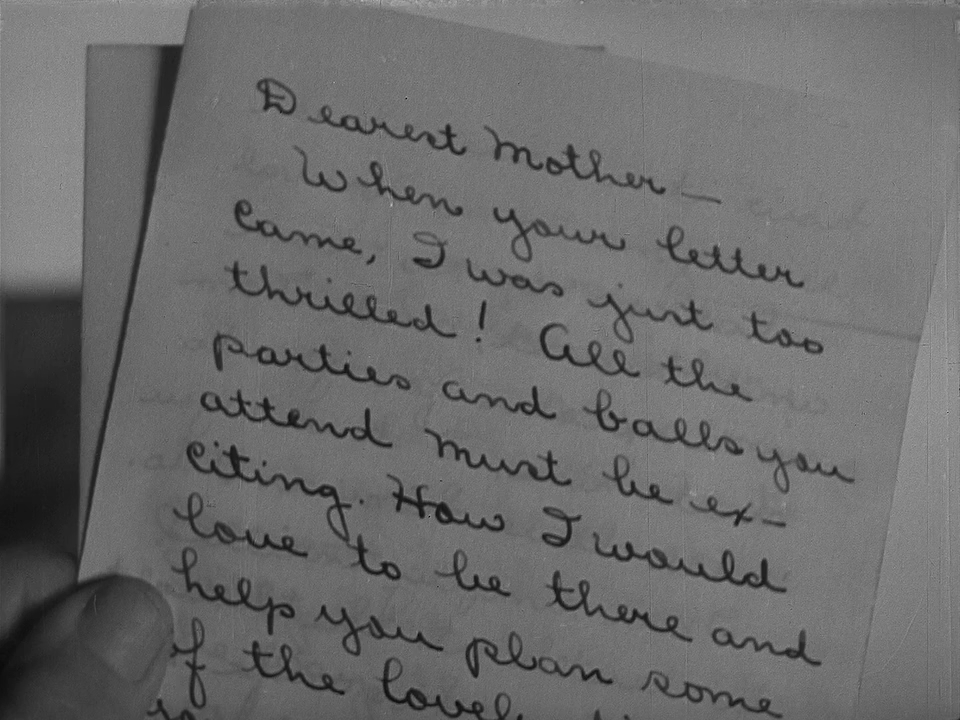 Dearest Mother —
When your letter
came, I was just too
thrilled! All the
parties and balls you
attend must be ex-
citing. How I would
love to be there and
help you plan some
of the